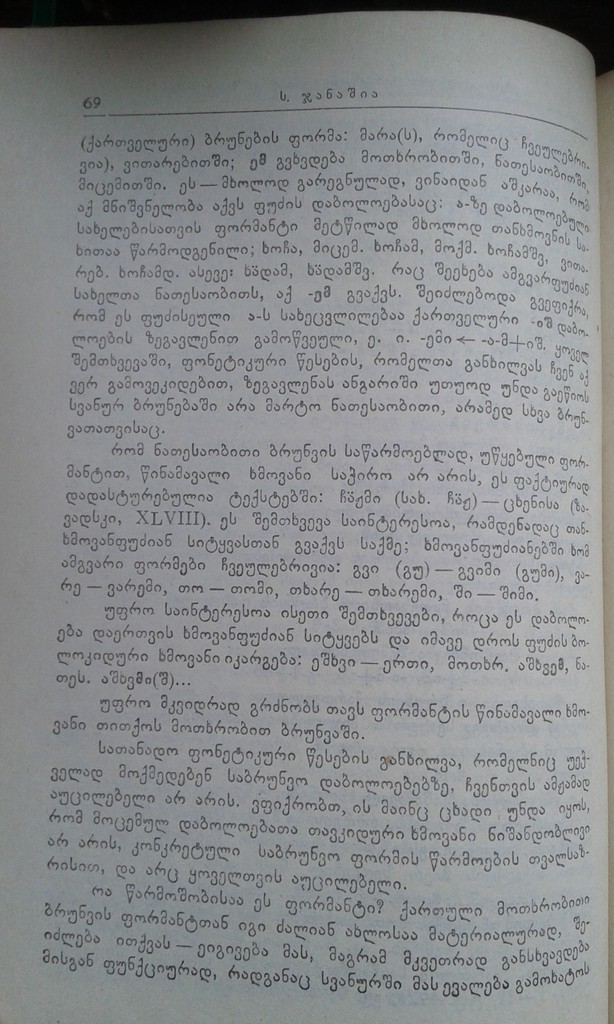 69
ს. ჯანაშია
(ქართველური) ბრუნების ფორმა: მარა(ს), რომელიც ჩვეულებრი-
ვია), ვითარებითში; ემ გვხვდება მოთხრობითში, ნათესაობითში,
მიცემითში. ეს — მხოლოდ გარეგნულად, ვინაიდან აშკარაა, რომ
აქ მნიშვნელობა აქვს ფუძის დაბოლოებასაც: ა-ზე დაბოლოებული
სახელებისათვის ფორმანტი მეტწილად მხოლოდ თანხმოვნის სა-
ხითაა წარმოდგენილი; ხოჩა, მიცემ. ხოჩამ, მოქმ. ხოჩამშვ, ვითა-
რებ. ხოჩამდ. ასევე: ხჲდამ, ხჲდამშვ. რაც შეეხება ამგვარფუძიან
სახელთა ნათესაობითს, აქ -ემ გვაქვს. შეიძლებოდა გვეფიქრა,
რომ ეს ფუძისეული ა-ს სახეცვლილებაა ქართველური -იშ დაბო-
ლოების ზეგავლენით გამოწვეული, ე. ი. -ემი ← -ა-მ+იშ. ყოველ
შემთხვევაში, ფონეტიკური წესების, რომელთა განხილვას ჩვენ აქ
ვერ გამოვეკიდებით, ზეგავლენას ანგარიში უთუოდ უნდა გაეწიოს
სვანურ ბრუნებაში არა მარტო ნათესაობითი, არამედ სხვა ბრუნ-
ვათათვისაც.
რომ ნათესაობითი ბრუნვის საწარმოებლად, უწყებული ფორ-
მანტით, წინამავალი ხმოვანი საჭირო არ არის, ეს ფაქტიურად
დადასტურებულია ტექსტებში: ჩა̈ჟმი (სახ. ჩა̈ჟ) — ცხენისა (ზა-
ვადსკი, XLVIII). ეს შემთხვევა საინტერესოა, რამდენადაც თან-
ხმოვანფუძიან სიტყვასთან გვაქვს საქმე; ხმოვანფუძიანებში ხომ
ამგვარი ფორმები ჩვეულებრივია: გვი (გუ) — გვიმი (გუმი), ვა-
რე — ვარემი, თო — თომი, თხარე — თხარემი, ში — შიმი.
უფრო საინტერესოა ისეთი შემთხვევები, როცა ეს დაბოლო-
ება დაერთვის ხმოვანფუძიან სიტყვებს და იმავე დროს ფუძის ბო-
ლოკიდური ხმოვანი იკარგება: ეშხვი — ერთი, მოთხრ. აშხვემ, ნა-
თეს. აშხვმი(შ)...
უფრო მკვიდრად გრძნობს თავს ფორმანტის წინამავალი ხმო-
ვანი თითქოს მოთხრობით ბრუნვაში.
სათანადო ფონეტიკური წესების განხილვა, რომელნიც უეჭ-
ველად მოქმედებენ საბრუნვო დაბოლოებებზე, ჩვენთვის ამჟამად
აუცილებელი არ არის. ვფიქრობთ, ის მაინც ცხადი უნდა იყოს,
რომ მოცემულ დაბოლოებათა თავკიდური ხმოვანი ნიშანდობლივი
არ არის, კონკრეტული საბრუნვო ფორმის წარმოების თვალსაზ-
რისით, და არც ყოველთვის აუცილებელი.
რა წარმოშობისაა ეს ფორმანტი? ქართული მოთხრობითი
ბრუნვის ფორმანტთან იგი ძალიან ახლოსაა მატერიალურად, შე-
იძლება ითქვას — ეიგივება მას, მაგრამ მკვეთრად განსხვავდება
მისგან ფუნქციურად, რადგანაც სვანურში მას ევალება გამოხატოს